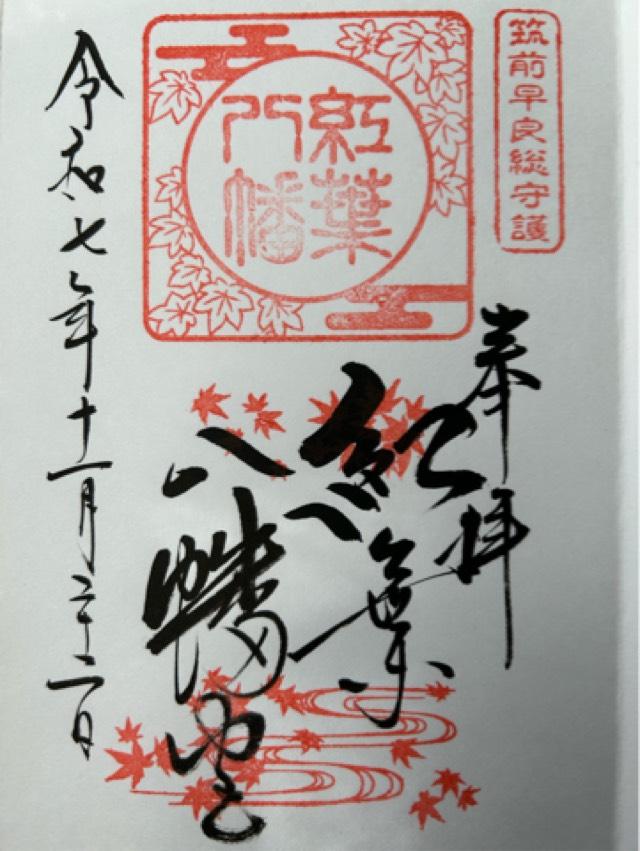 筑前早良総守護
奉拝
紅葉
八幡宮
紅葉
八幡
令和七年十一月二十二日